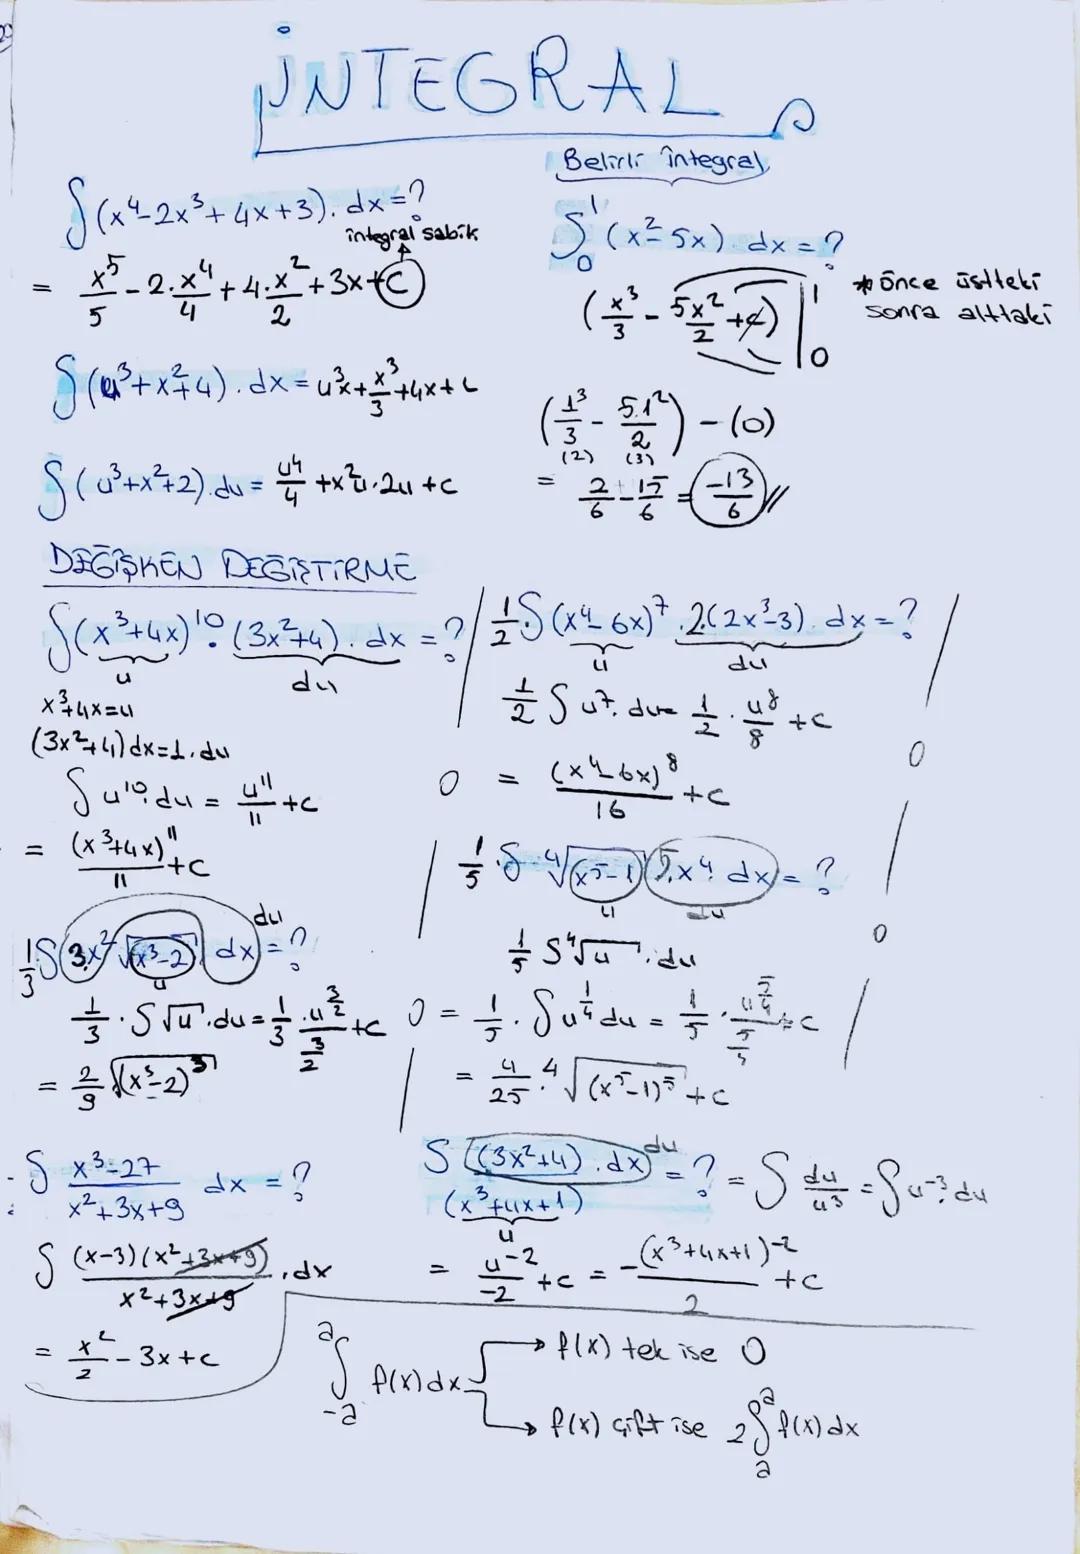 İNTEGRAL
∫(x⁴-2x³+4x+3).dx=?
integral sabik
= x⁵/5 - 2.x⁴/4 + 4.x²/2 + 3x+C
∫(u³+x²+4).dx = u³x+x³/3+4x+c
∫(u³+x²+2).du = u⁴/4 +x²u.2u +c
Belirli integral
∫₀¹ (x²-5x).dx = ?
(x³/3 - 5x²/2 +c) |₀¹
* önce üstteki
sonra alttaki
(1³/3 - 5.1²/2) - (0)
(2) (3)
= 2/6 - 15/6 = -13/6
DEĞİŞKEN DEĞİŞTİRME
∫(x³+4x)¹⁰.(3x²+4).dx = ?
u du
x³+4x=u
(3x²+4)dx=1.du
∫u¹⁰.du = u¹¹/11 +c
= (x³+4x)¹¹/11 +c
1/2.∫(x⁴-6x)⁷.2(2x³-3).dx=?
u du
1/2 ∫u⁷.du= 1/2 . u⁸/8 +c
= (x⁴-6x)⁸/16 +c
1/3∫3.x²√(x³-2) dx=?
du
u
1/3.∫√u.du=1/3.u^(3/2)/(3/2)+c
= 2/9 √(x³-2)³
1/5.∫ ⁴√(x⁵-1) 5.x⁴.dx=?
u du
1/5 ∫⁴√u.du
= 1/5.∫u^(1/4) du = 1/5.u^(5/4)/(5/5)+c
= 4/25.⁴√(x⁵-1)⁵ +c
∫ (x³-27)/(x²+3x+9) dx = ?
∫ (x-3)(x²+3x+9)/(x²+3x+9) .dx
= x²/2 - 3x+c
∫ (3x²+4).dx/(x³+4x+1) = ? = ∫ du/u³ = ∫u⁻³.du
du
u
= u⁻²/-2 +c = -(x³+4x+1)⁻²/2 +c
∫₋ₐᵃ f(x)dx
→ f(x) tek ise 0
→ f(x) çift ise 2∫ₐᵃ f(x)dx